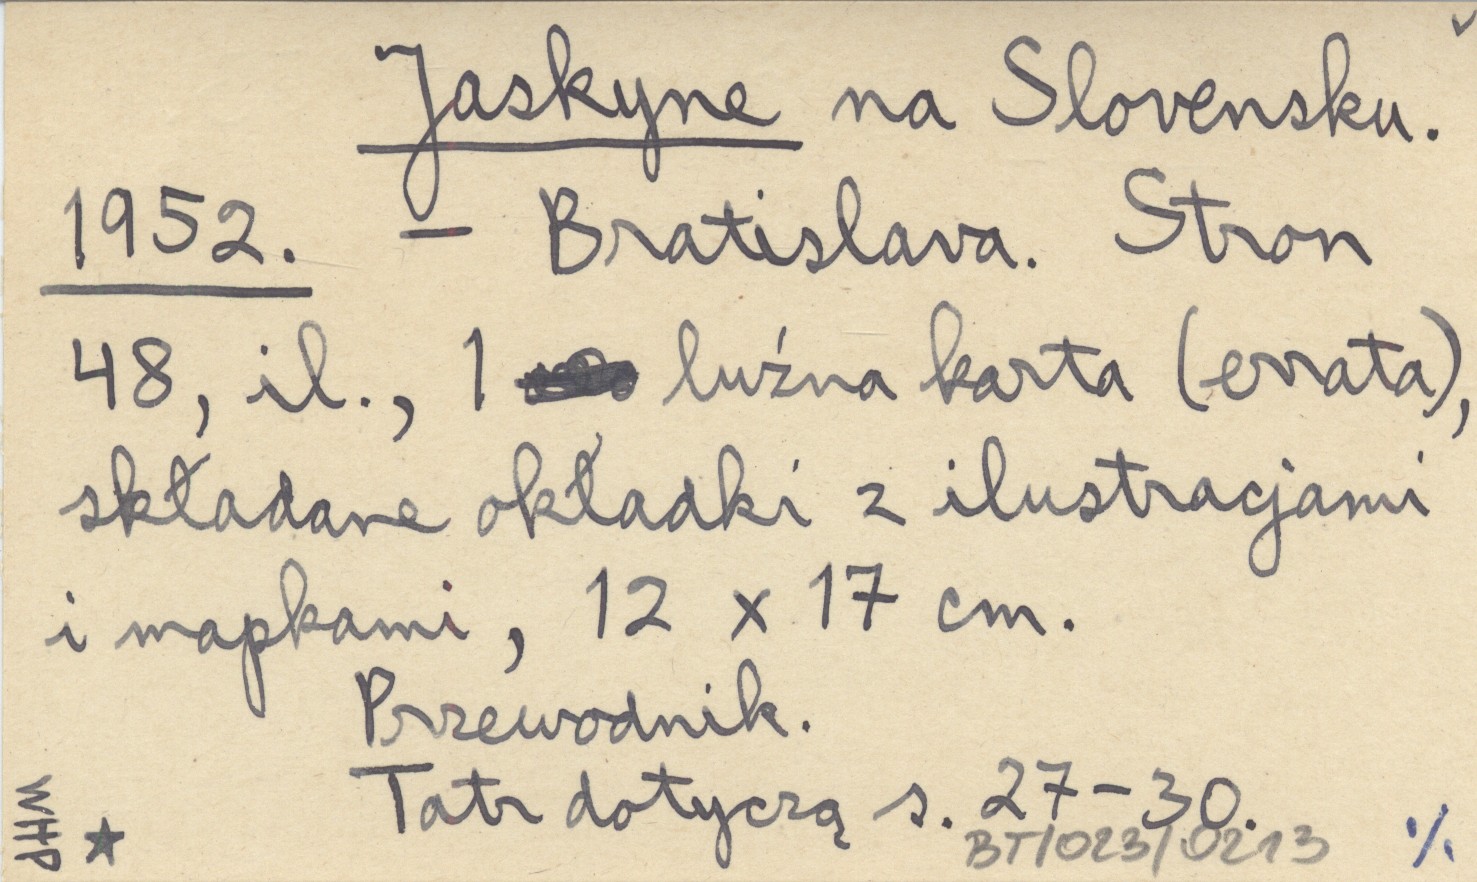 Jaskyne na Slovensku.
1952. – Bratislava. Stron
48, il., 1 luźna karta (errata),
składane okładki z ilustracjami
i mapkami, 12 x 17 cm.
Przewodnik.
Tatr dotyczą s. 27–30.
WHP
BT/023/0213